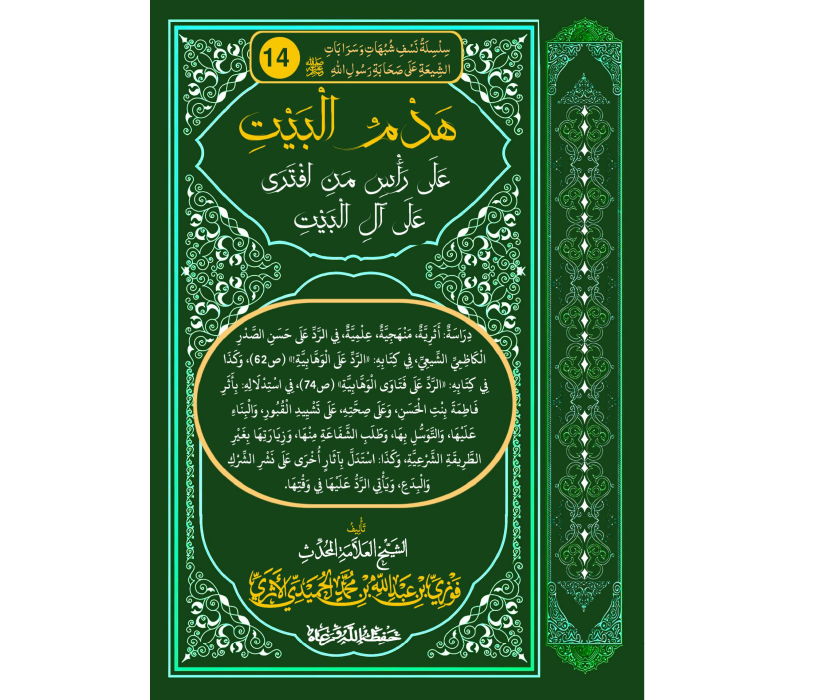 سِلْسِلَةُ نَسْفِ شُبُهَاتِ وَسَرَابَاتِ
الشِّيعَةِ عَلَى صَحَابَةِ رَسُولِ اللهِ ﷺ
14
هَدْمُ الْبَيْتِ
عَلَى رَأْسِ مَنِ افْتَرَى
عَلَى آلِ الْبَيْتِ
دِرَاسَةٌ: أَثَرِيَّةٌ، مَنْهَجِيَّةٌ، عِلْمِيَّةٌ، فِي الرَّدِّ عَلَى حَسَنِ الصَّدْرِ
الْكَاظِمِيِّ الشِّيعِيِّ، فِي كِتَابِهِ: «الرَّدِّ عَلَى الْوَهَّابِيَّةِ» (ص62)، وَكَذَا
فِي كِتَابِهِ: «الرَّدِّ عَلَى فَتَاوَى الْوَهَّابِيَّةِ» (ص74)، فِي اسْتِدْلَالِهِ: بِأَثَرِ
فَاطِمَةَ بِنْتِ الْحَسَنِ، وَعَلَى صِحَّتِهِ، عَلَى تَشْيِيدِ الْقُبُورِ، وَالْبِنَاءِ
عَلَيْهَا، وَالتَّوَسُّلِ بِهَا، وَطَلَبِ الشَّفَاعَةِ مِنْهَا، وَزِيَارَتِهَا بِغَيْرِ
الطَّرِيقَةِ الشَّرْعِيَّةِ، وَكَذَا: اسْتَدَلَّ بِآثَارٍ أُخْرَى عَلَى نَشْرِ الشِّرْكِ
وَالْبِدَعِ، وَيَأْتِي الرَّدُّ عَلَيْهَا فِي وَقْتِهَا.
تَأْلِيفُ
الشَّيْخِ الْعَلَّامَةِ الْمُحَدِّثِ
فَوْزِيِّ بْنِ عَبْدِ اللَّهِ بْنِ مُحَمَّدٍ الْحُمَيْدِيِّ الْأَثَرِيِّ
حَفِظَهُ اللَّهُ وَرَعَاهُ